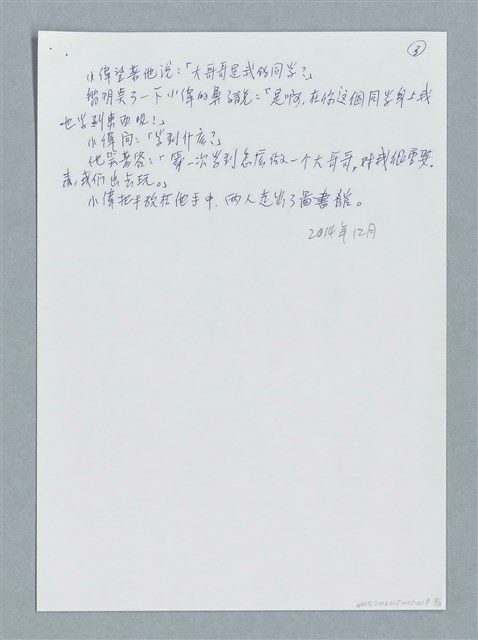 ③
小偉望著他说：「大哥哥是我的同学？」
黎明臭了一下小偉的鼻子說：「是啊，在你这個同学身上我
也学到東西呢！」
小偉问：「学到什麼？」
他笑著答：「第一次学到怎麼做一个大哥哥，对我很重要。
走，我们出去玩。」
小偉把手放在他手中，两人走出了圖書館。
2014年12月